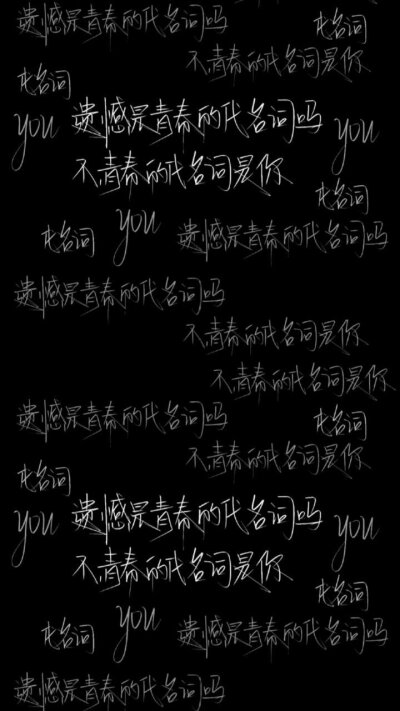 遗憾是青春的代名词吗
代名词
不,青春的代名词是你
代名词
you
遗憾是青春的代名词吗
you
不,青春的代名词是你
代名词
you
代名词
遗憾是青春的代名词吗
遗憾是青春的代名词吗
不,青春的代名词是你
不,青春的代名词是你
遗憾是青春的代名词吗
代名词
不,青春的代名词是你
代名词
you
遗憾是青春的代名词吗
you
不,青春的代名词是你
代名词
you
代名词
遗憾是青春的代名词吗
遗憾是青春的代名词吗